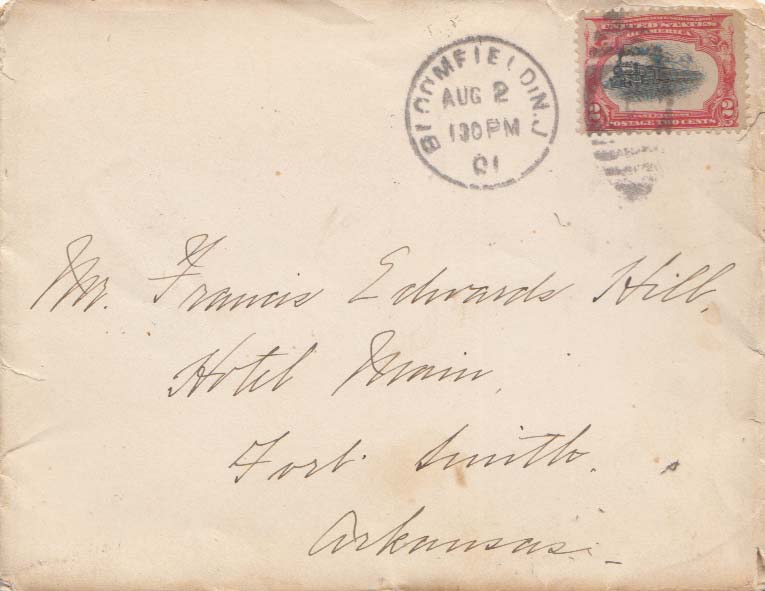 UNITED STATES
OF AMERICA
2 2
POSTAGE TWO CENTS
BLOOMFIELD N.J
AUG 2
1 30 PM
01
Mr. Francis Edwards Hill,
Hotel Main,
Fort Smith,
Arkansas.